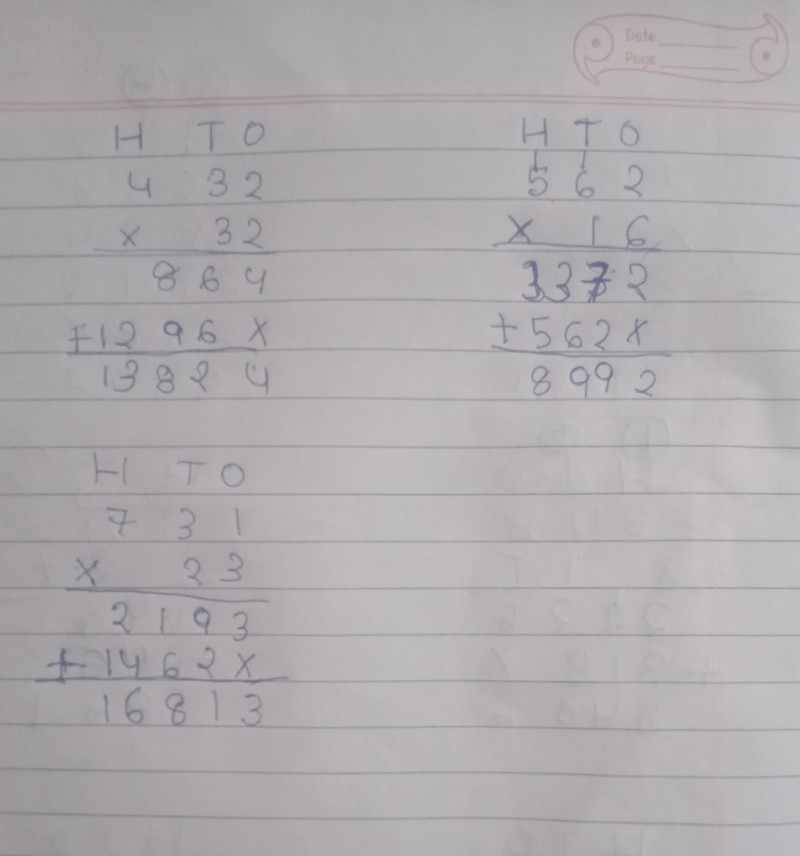 Date
Page
H T O
4 3 2
x 3 2
8 6 4
+ 12 9 6 x
13 8 2 4
H T O
1 1
5 6 2
x 1 6
3 3 7 2
+ 5 6 2 x
8 9 9 2
H T O
7 3 1
x 2 3
2 1 9 3
+ 1 4 6 2 x
1 6 8 1 3